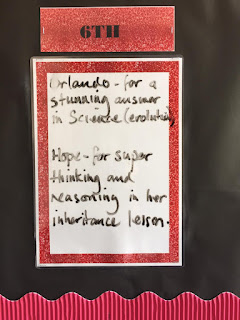 6TH
Orlando - for a
stunning answer
in Science (evolution)
Hope - for super
thinking and
reasoning in her
inheritance lesson.